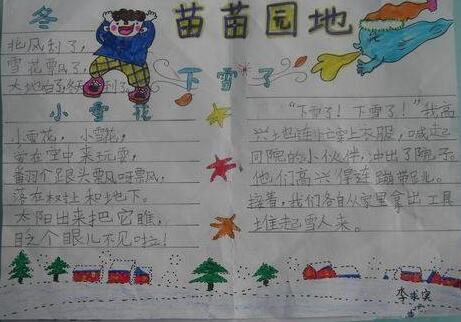 苗苗园地
冬
北风刮了,
雪花飘了,
大地
小雪花
小雪花,小雪花,
空中来玩耍,
翻个跟头飘呀飘,
落在树上和地下。
太阳出来把它瞧,
眨个眼儿不见啦!
下雪了
“下雪了!下雪了!”我高
兴地连忙穿上衣服,喊起
同院的小伙伴,冲出了院子。
他们高兴得连蹦带跳。
接着,我们各自从家里拿出工具
堆起雪人来。
李